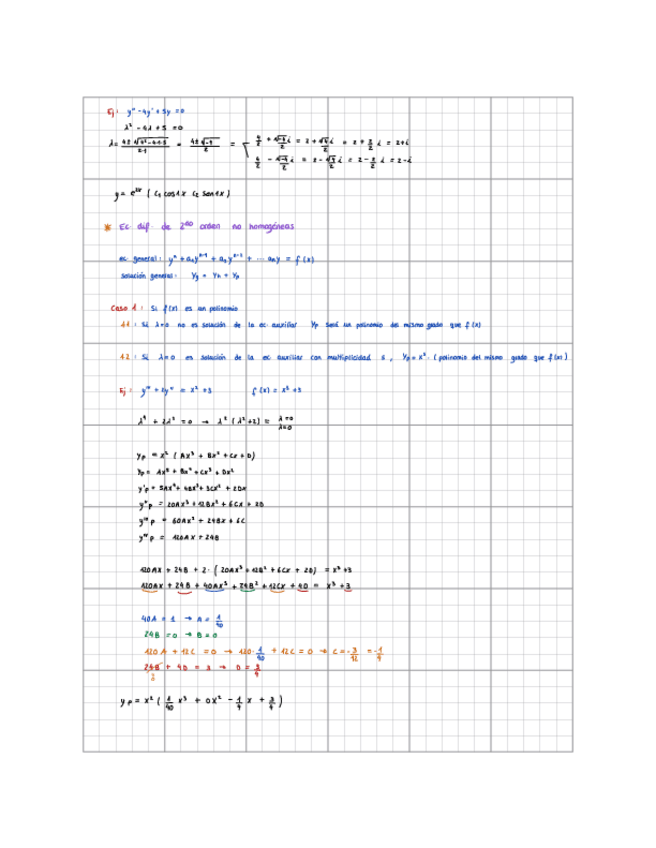 Ej: y'' - 4y' + 5y = 0
λ² - 4λ + 5 = 0
λ = (4 ± √(4² - 4·1·5)) / (2·1) = (4 ± √-4) / 2 = 4/2 + √4/2 i = 2 + √4/2 i = 2 + 2/2 i = 2+i
4/2 - √4/2 i = 2 - √4/2 i = 2 - 2/2 i = 2-i
y = e²ˣ ( C₁ cos 1x C₂ sen 1x )
* Ec. dif. de 2ᵈᵒ orden no homogéneas
ec. general: yⁿ + a₁yⁿ⁻¹ + a₂yⁿ⁻² + ... aₙy = f(x)
solución general: Yg = Yh + Yp
Caso 1: Si f(x) es un polinomio
1.1: Si λ=0 no es solución de la ec. auxiliar Yp será un polinomio del mismo grado que f(x)
1.2: Si λ=0 es solución de la ec auxiliar con multiplicidad s, Yp = xˢ. (polinomio del mismo grado que f(x))
Ej: yⁱᵛ + 2y'' = x³ + 3 f(x) = x³ + 3
λ⁴ + 2λ² = 0 → λ² (λ² + 2) = λ=0
λ=0
yp = x² ( Ax³ + Bx² + Cx + D)
yp = Ax⁵ + Bx⁴ + Cx³ + Dx²
y'p = 5Ax⁴ + 4Bx³ + 3Cx² + 2Dx
y''p = 20Ax³ + 12Bx² + 6Cx + 2D
y'''p = 60Ax² + 24Bx + 6C
yⁱᵛp = 120Ax + 24B
120Ax + 24B + 2 · ( 20Ax³ + 12B² + 6Cx + 2D) = x³ + 3
120Ax + 24B + 40Ax³ + 24B² + 12Cx + 4D = x³ + 3
40A = 1 → A = 1/40
24B = 0 → B = 0
120A + 12C = 0 → 120 · 1/40 + 12C = 0 → C = -3/12 = -1/4
24B + 4D = 3 → D = 3/4
0
yp = x² ( 1/40 x³ + 0x² - 1/4 x + 3/4 )